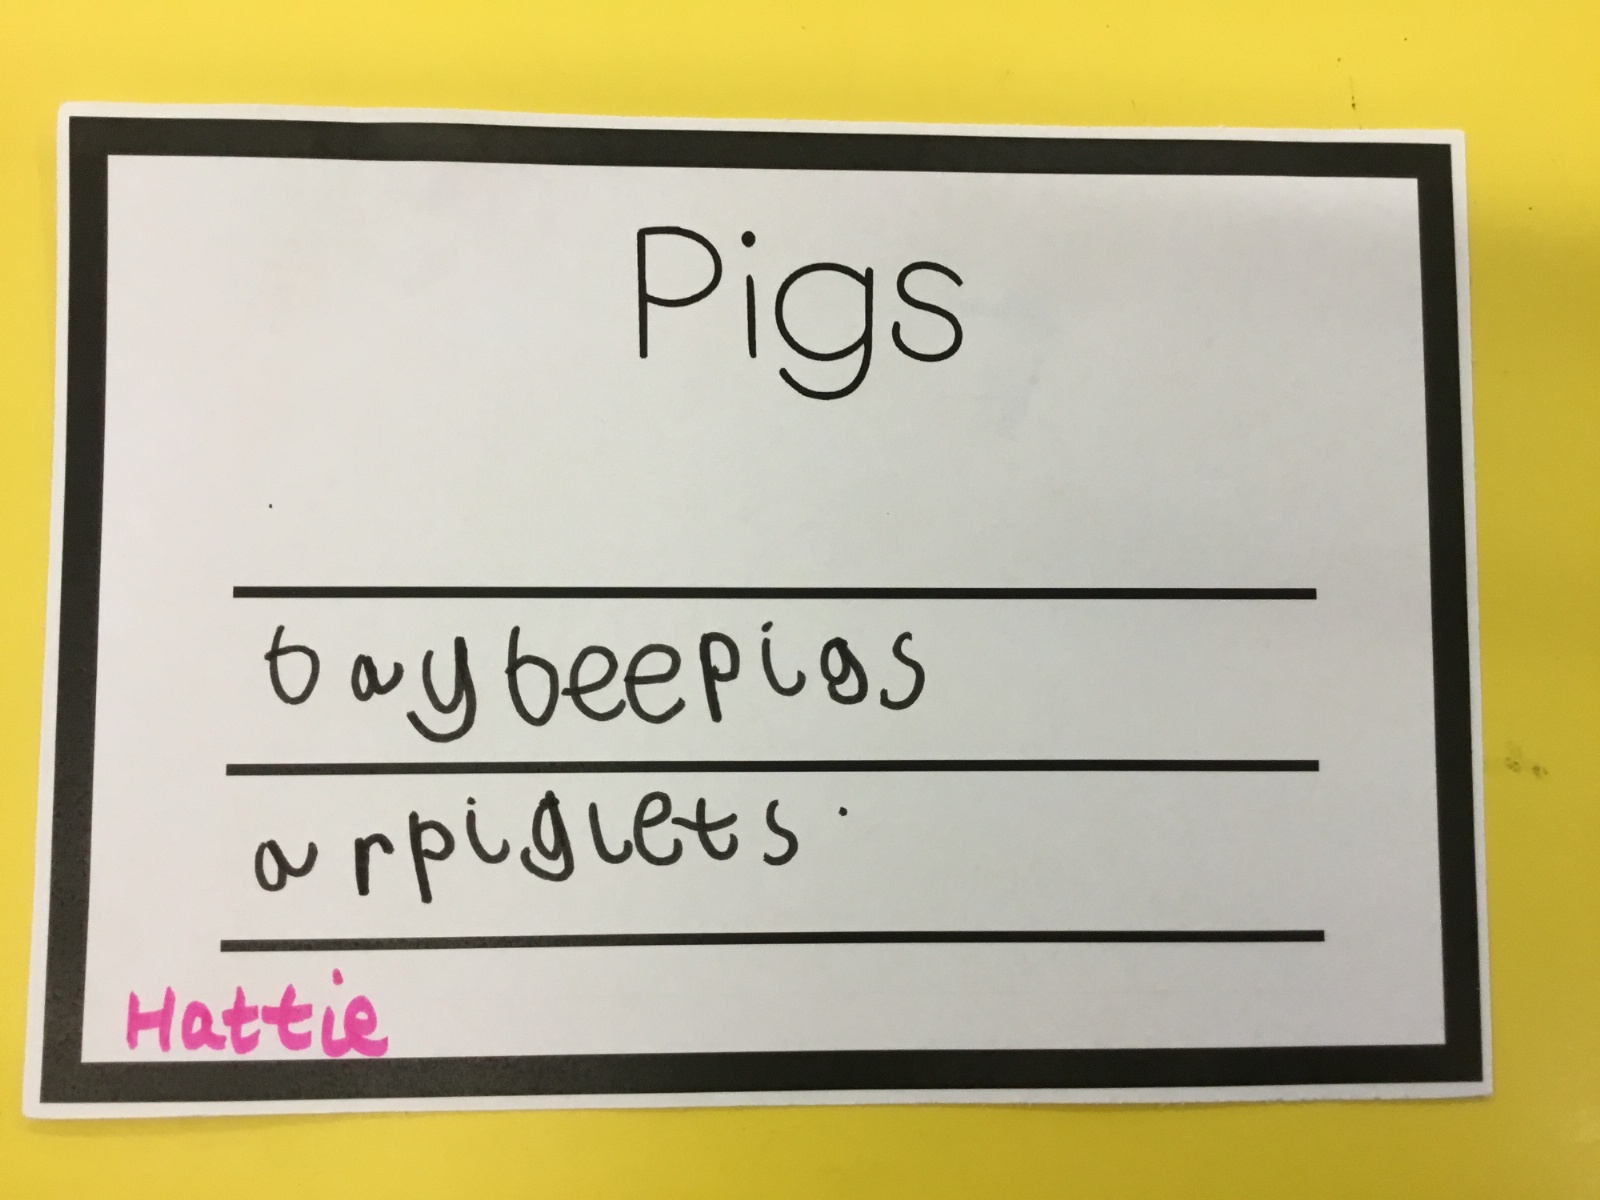 Pigs
baybeepigs
arpiglets.
Hattie